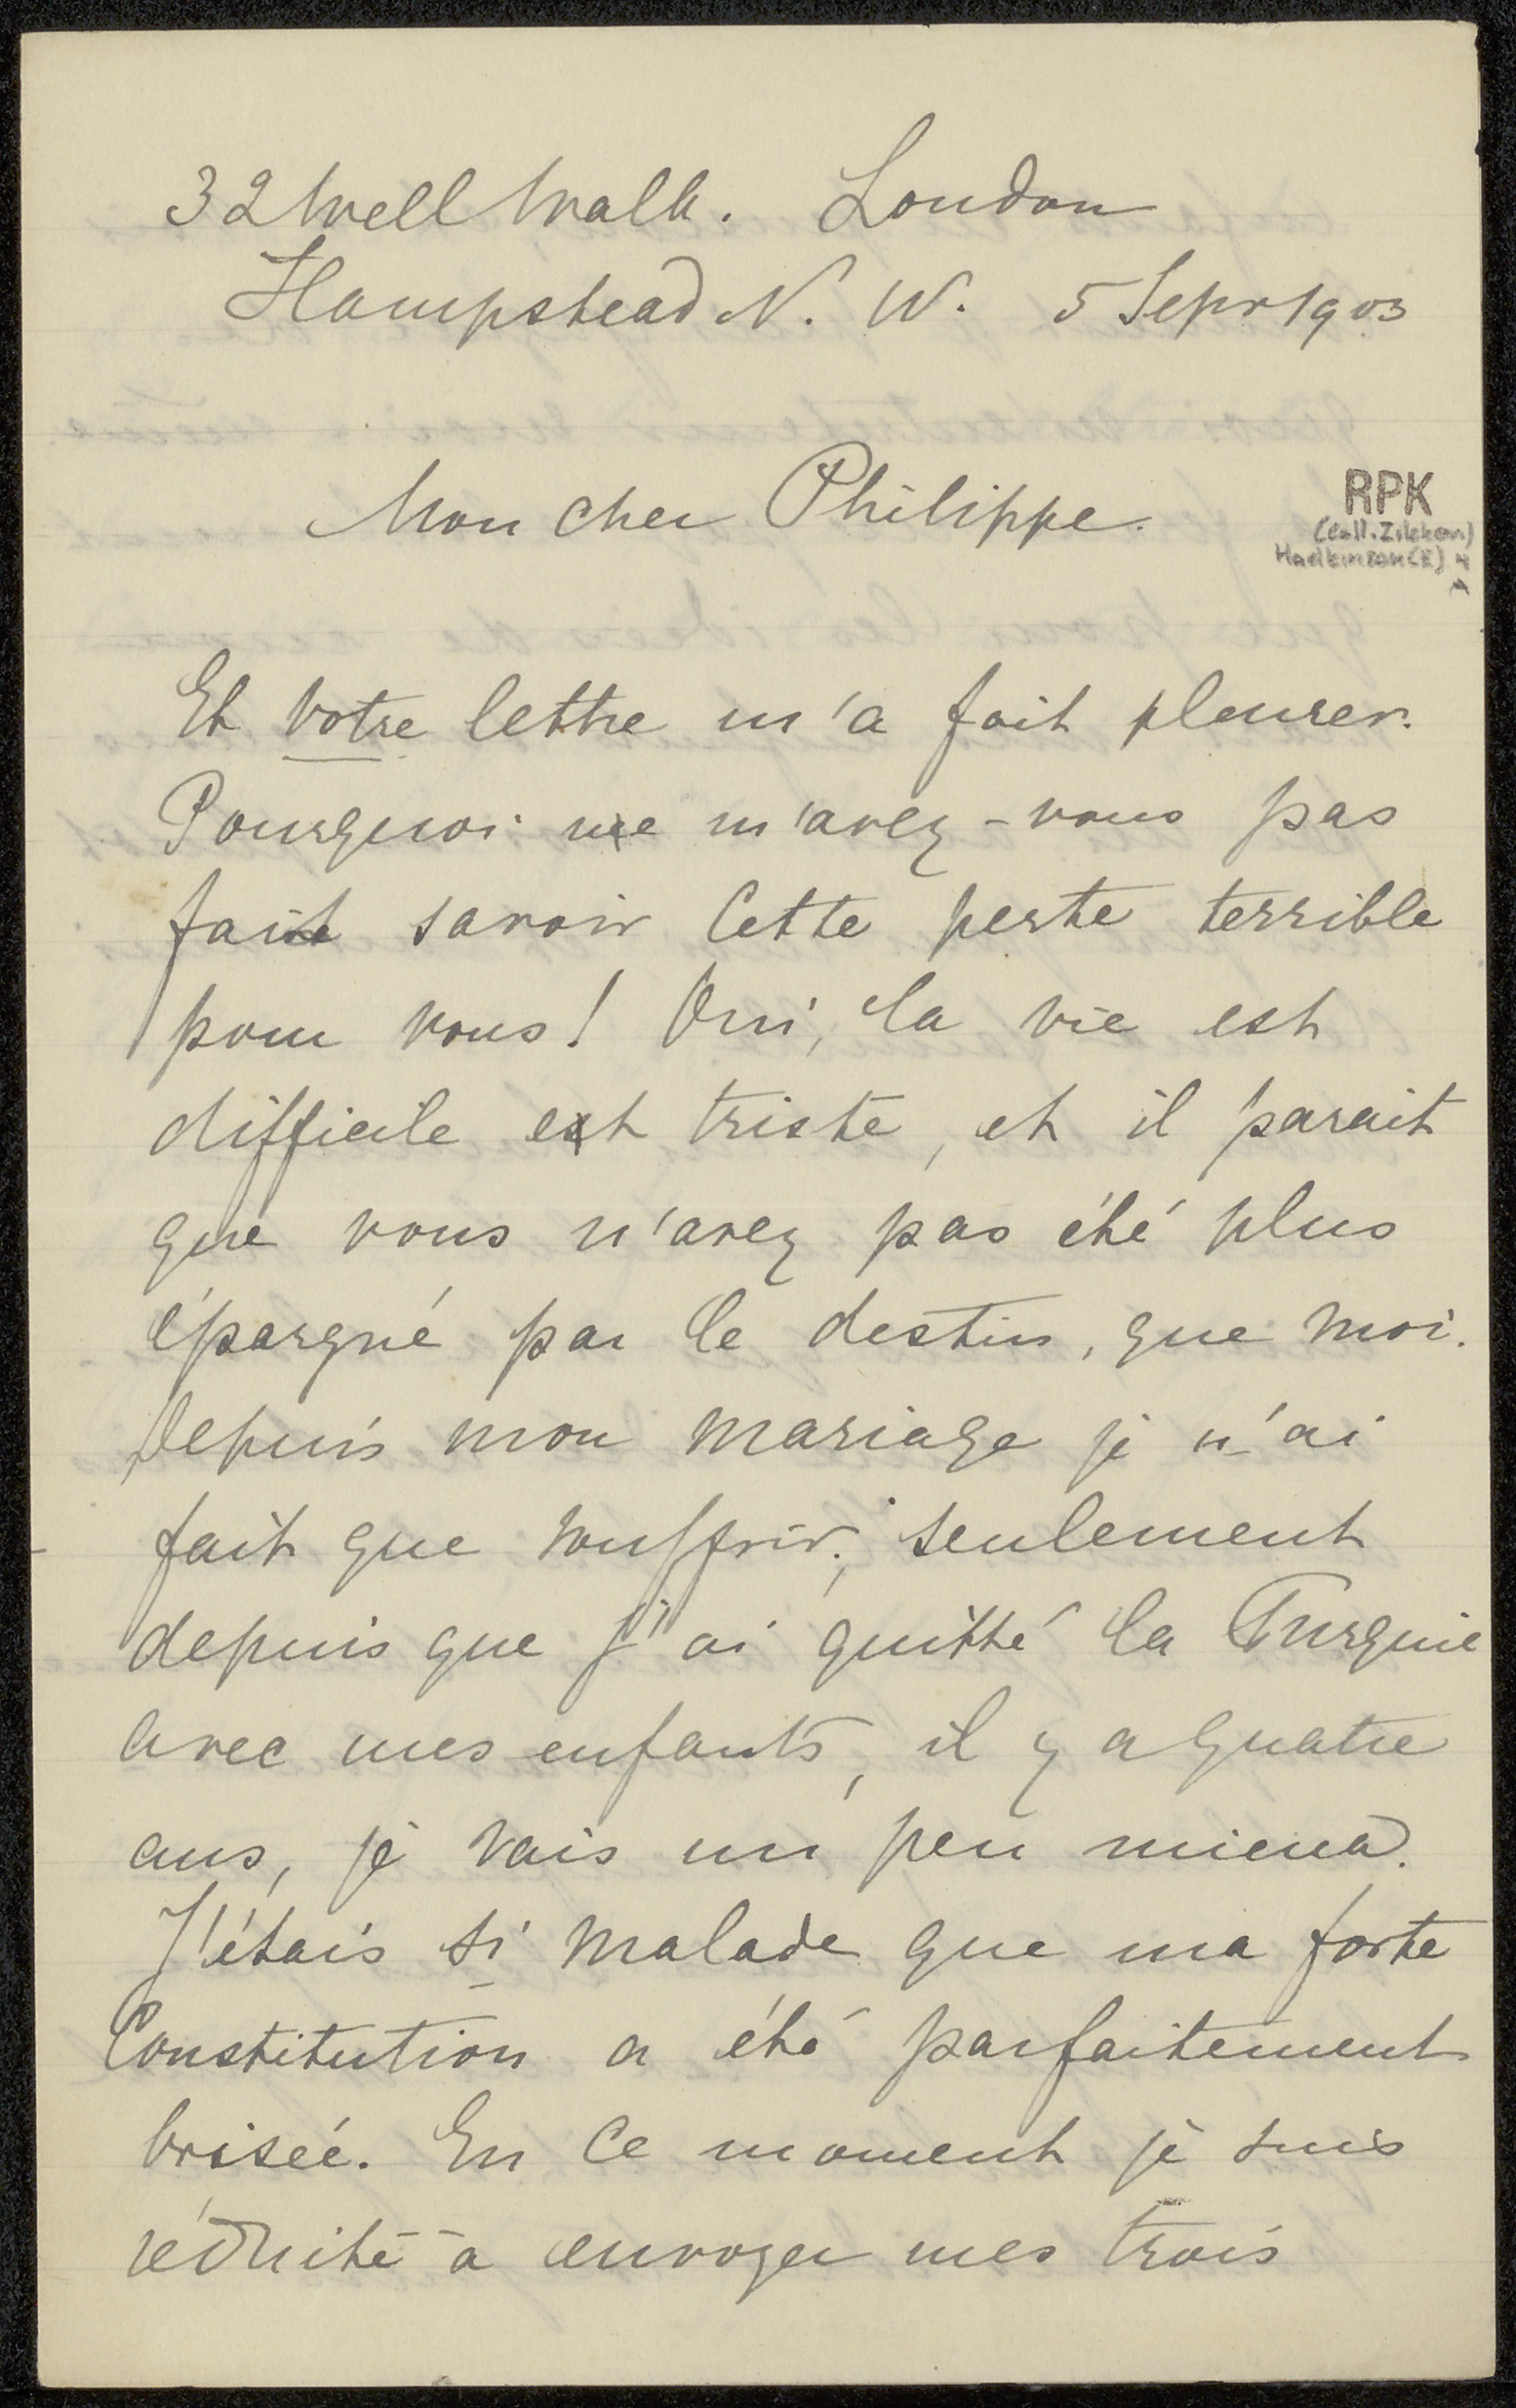 32 Well Walk. London
Hampstead N. W. 5 Sepr 1903
Mon cher Philippe.
RPK
(Coll. Zilcken)
Hadkinson (E) 4
A
Et votre lettre m'a fait pleurer.
Pourquoi ne m'avez-vous pas
fait savoir cette perte terrible
pour vous! Oui, la vie est
difficile et triste, et il parait
que vous n'avez pas été plus
épargné par le destin, que moi.
Depuis mon mariage je n'ai
fait que souffrir; seulement
depuis que j'ai quitté la Turquie
avec mes enfants, il y a quatre
ans, je vais un peu mieux.
J'étais si malade que ma forte
Constitution a été parfaitement
brisée. En ce moment je suis
réduite à envoyer mes trois